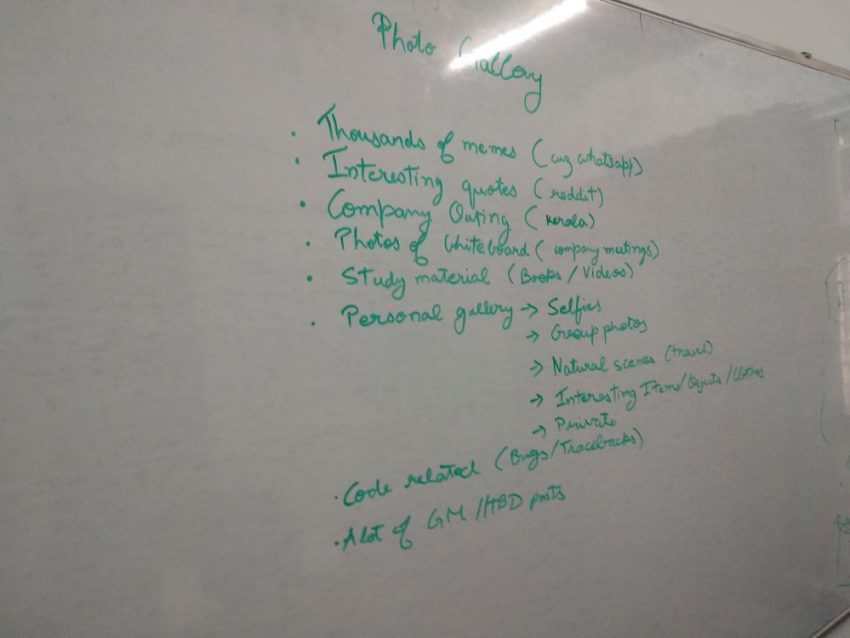 Photo Gallery
• Thousands of memes (cuz whatsapp)
• Interesting quotes (reddit)
• Company Outing (Kerala)
• Photos of Whiteboard (company meetings)
• Study material (Books / Videos)
• Personal gallery → Selfies
→ Group photos
→ Natural scenes (travel)
→ Interesting Items/Objects/Clothes
→ Private
• Code related (Bugs/Tracebacks)
• A lot of GM/HBD posts